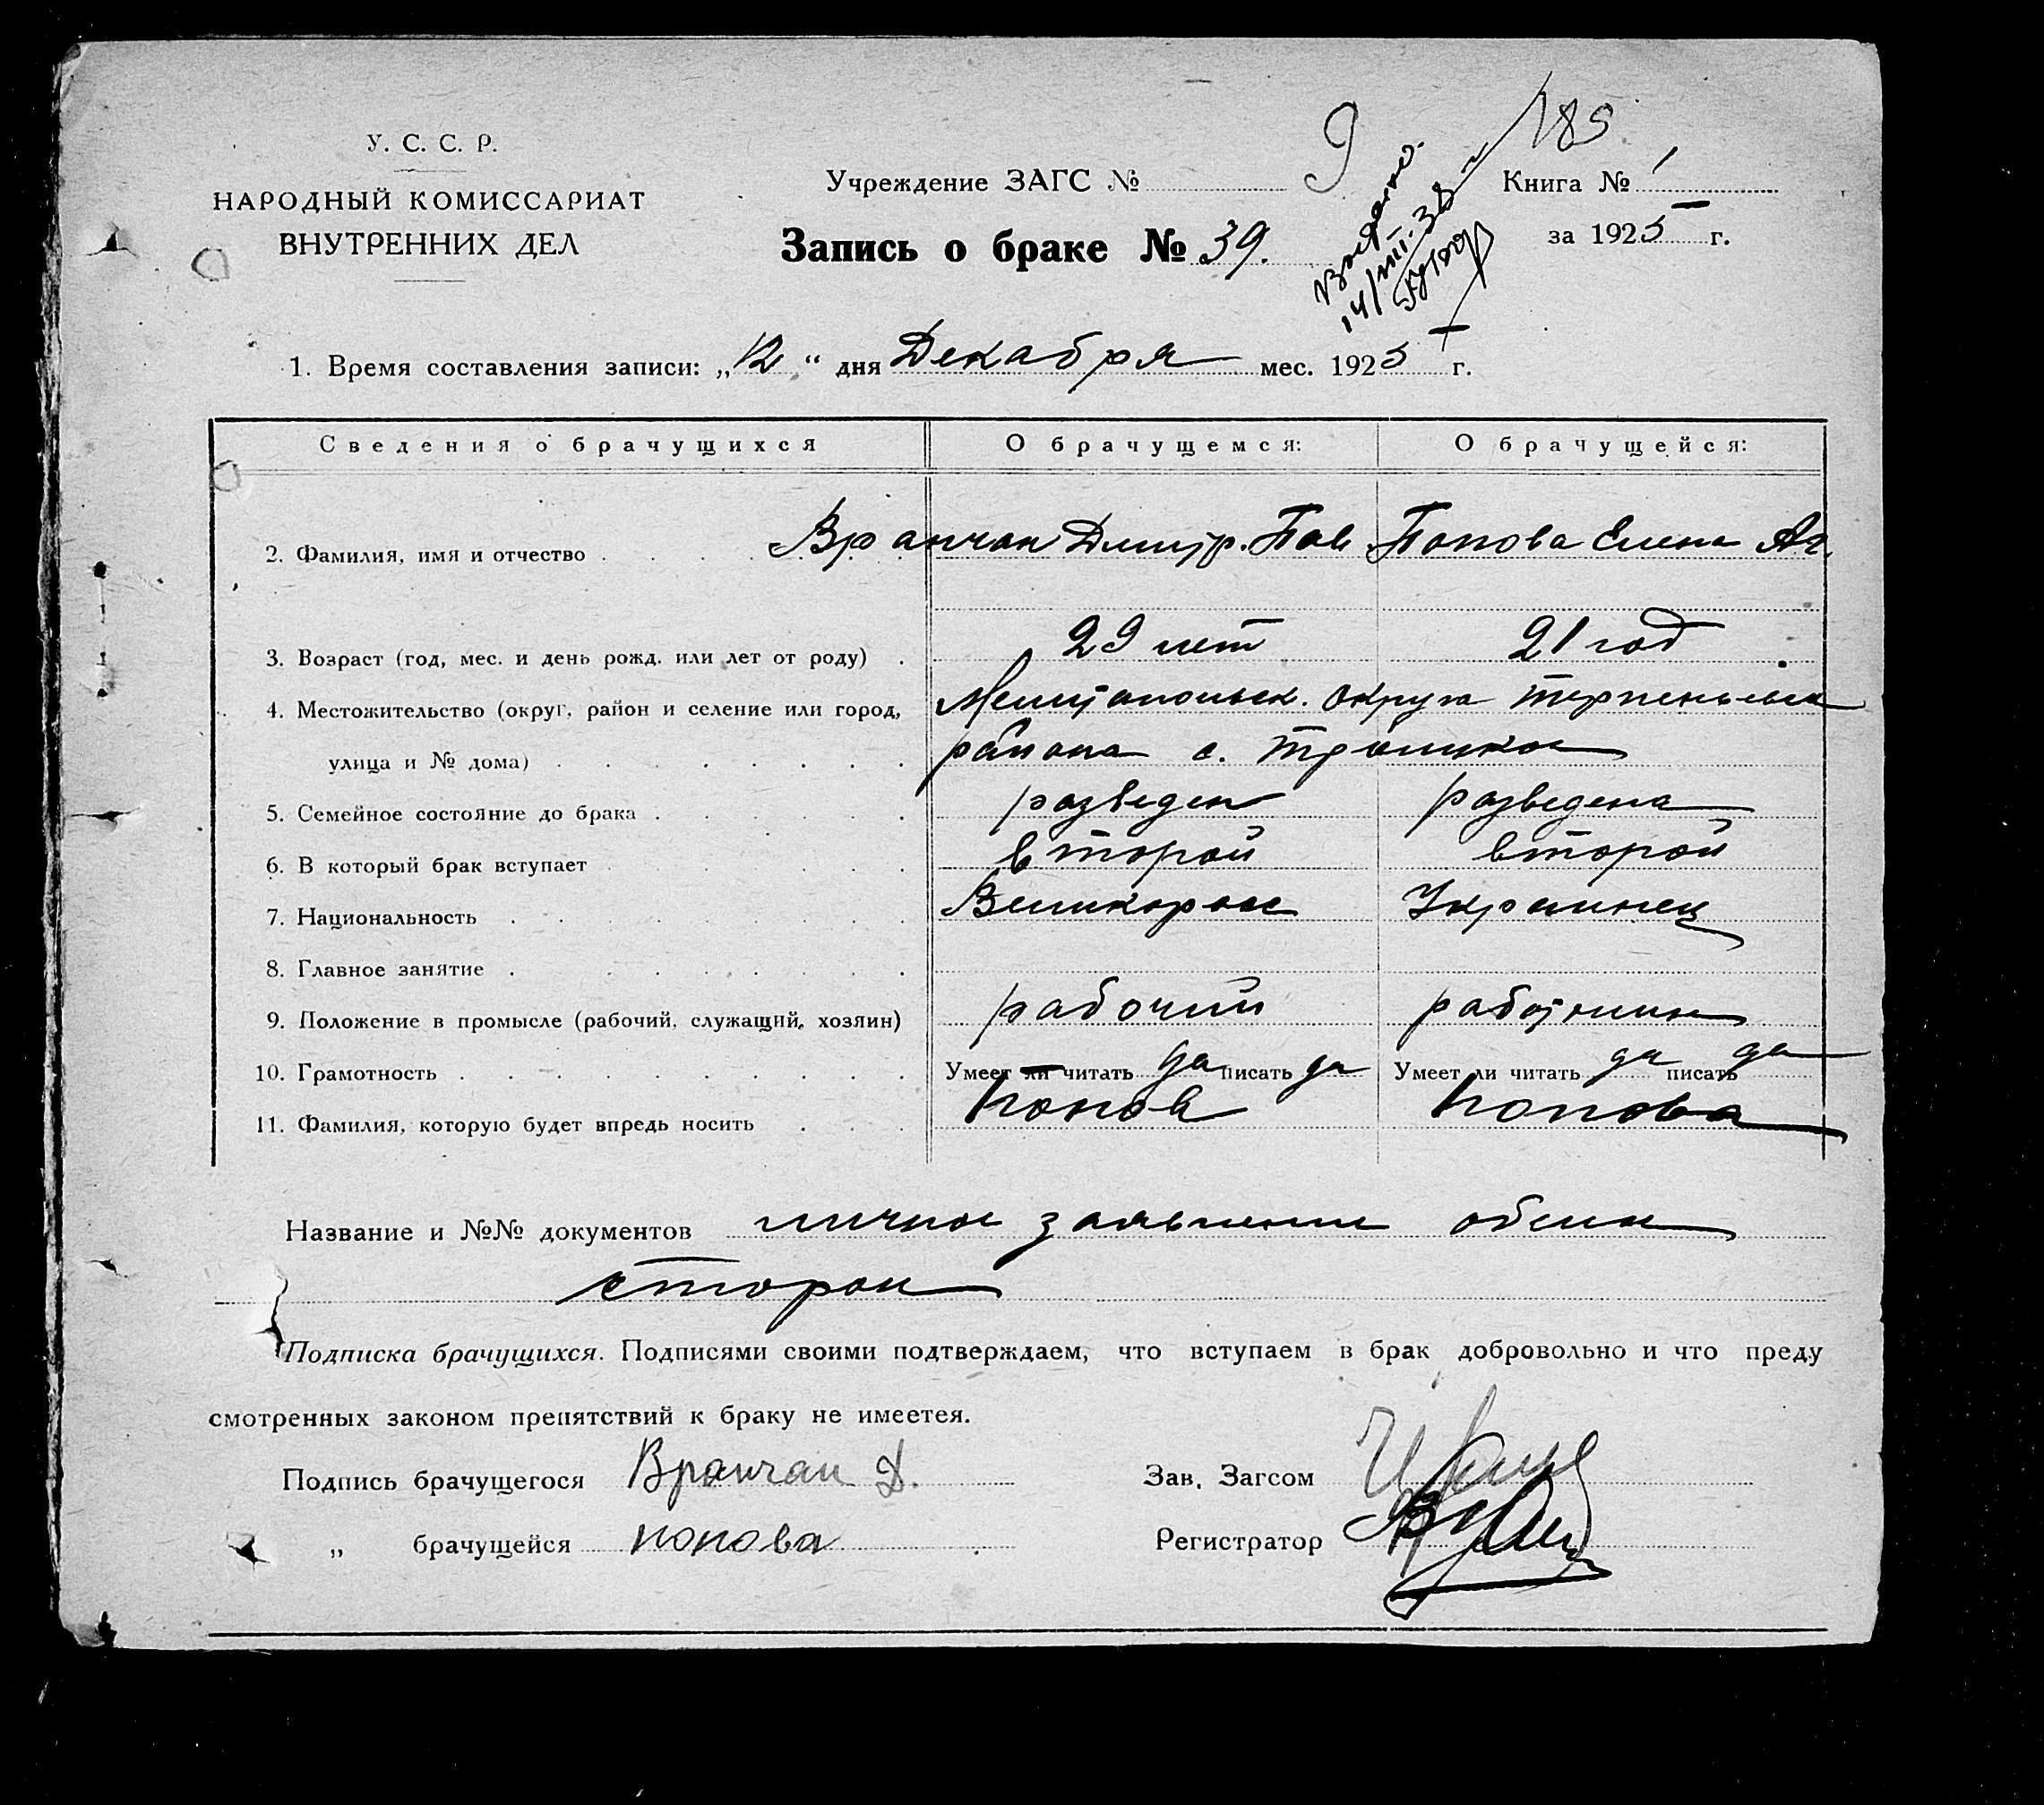 У. С. С. Р.
НАРОДНЫЙ КОМИССАРИАТ
ВНУТРЕННИХ ДЕЛ
9
185
Учреждение ЗАГС №
Книга № 1
за 1925 г.
Запись о браке № 39.
14/VIII-38
1. Время составления записи: „12“ дня Декабря мес. 1925 г.
Сведения о брачущихся О брачущемся: О брачущейся:
2. Фамилия, имя и отчество Вранчан Дмитр. Пав Попова Елена
3. Возраст (год, мес. и день рожд. или лет от роду) 29 лет 21 год
4. Местожительство (округ, район и селение или город, Мелитопольск. округа Терпеньевск
улица и № дома) района с. Троицкое
5. Семейное состояние до брака разведен разведена
6. В который брак вступает второй второй
7. Национальность Великорос Украинец
8. Главное занятие
9. Положение в промысле (рабочий, служащий, хозяин) рабочий работница
10. Грамотность Умеет ли читать да писать да Умеет ли читать да писать да
11. Фамилия, которую будет впредь носить Попов Попова
Название и №№ документов личное заявление обеих
сторон
Подписка брачущихся. Подписями своими подтверждаем, что вступаем в брак добровольно и что преду
смотренных законом препятствий к браку не имеетея.
Подпись брачущегося Вранчан Д.
Зав. Загсом
„ брачущейся попова
Регистратор